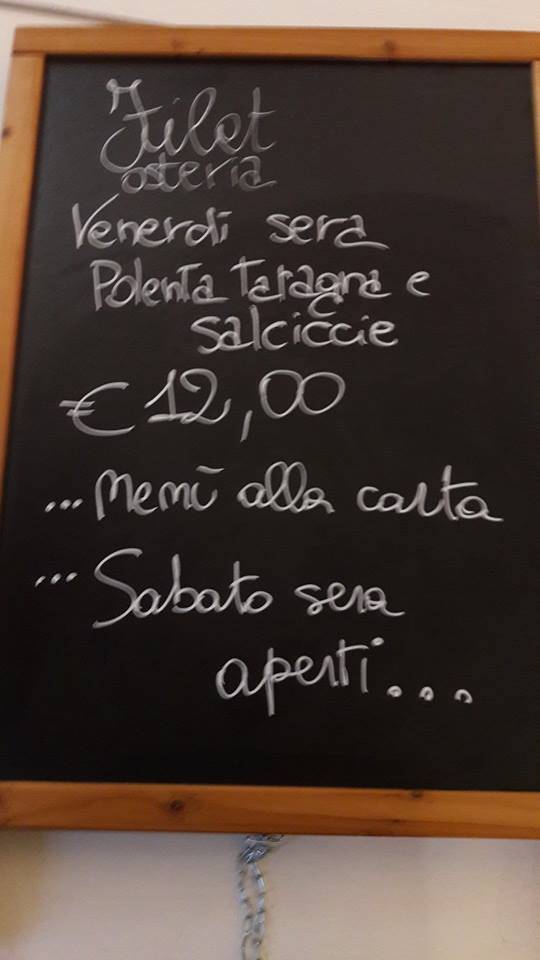 Filet
osteria
Venerdì sera
Polenta taragna e
salciccie
€ 12,00
...Menù alla carta
...Sabato sera
aperti...